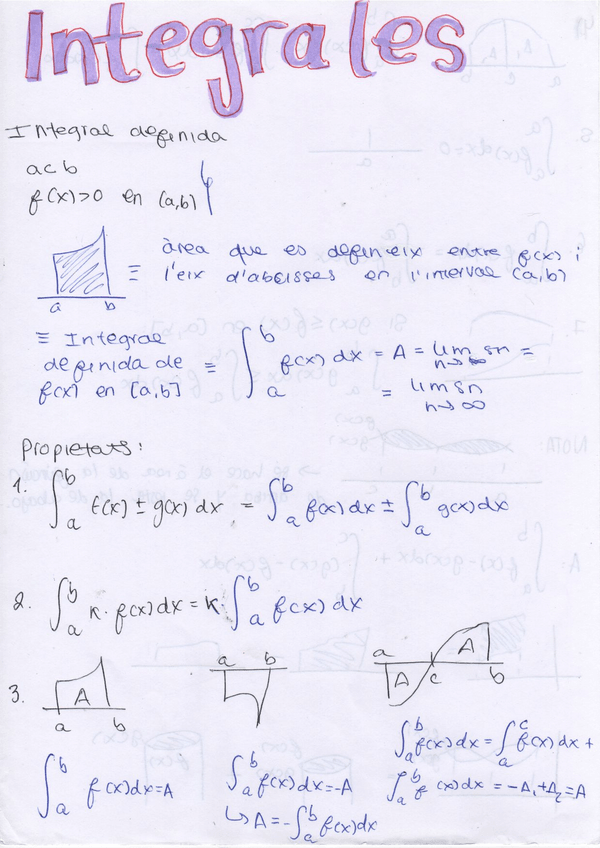 Integrales
Integral definida
a<b
f(x)>0 en [a,b]
àrea que es defineix entre f(x) i
≡ l'eix d'abcisses en l'interval [a,b]
a b
≡ Integral
definida de
f(x) en [a,b]
≡ ∫_a^b f(x) dx = A = lim_{n→∞} sn =
= lim_{n→∞} sn
Propietats:
1. ∫_a^b f(x) ± g(x) dx = ∫_a^b f(x) dx ± ∫_a^b g(x) dx
2. ∫_a^b K · f(x) dx = K ∫_a^b f(x) dx
3.
A
a b
a b
a
A A
c b
∫_a^b f(x) dx = A
∫_a^b f(x) dx = -A
↳ A = -∫_a^b f(x) dx
∫_a^b f(x) dx = ∫_a^c f(x) dx +
∫_a^b f(x) dx = -A₁ + A₂ = A